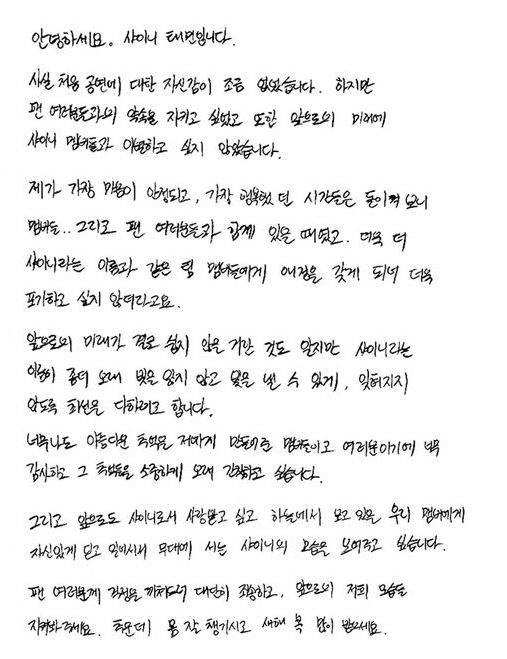 안녕하세요. 샤이니 태민입니다.
사실 처음 공연에 대한 자신감이 조금 없었습니다. 하지만
팬 여러분들과의 약속을 지키고 싶었고 또한 앞으로의 미래에
샤이니 멤버들과 이별하고 싶지 않았습니다.
제가 가장 마음이 안정되고, 가장 행복했던 시간들은 돌이켜 보니
멤버들.. 그리고 팬 여러분들과 함께 있을 때였고. 더욱 더
샤이니라는 이름과 같은 팀 멤버들에게 애정을 갖게 되어 더욱
포기하고 싶지 않더라고요.
앞으로의 미래가 결코 쉽지 않을 거란 것도 알지만 샤이니라는
이름이 좀더 오래 빛을 잃지 않고 빛을 낼 수 있게, 잊혀지지
않도록 최선을 다하려고 합니다.
너무나도 아름다운 추억을 저에게 만들어준 멤버들이고 여러분이기에 너무
감사하고 그 추억들을 소중하게 오래 간직하고 싶습니다.
그리고 앞으로도 샤이니로서 사랑받고 싶고 하늘에서 보고 있을 우리 멤버에게
자신있게 믿고 일어서서 무대에 서는 샤이니의 모습을 보여주고 싶습니다.
팬 여러분께 걱정을 끼쳐드려 대단히 죄송하고, 앞으로의 저희 모습을
지켜봐주세요. 추운데 몸 잘 챙기시고 새해 복 많이 받으세요.